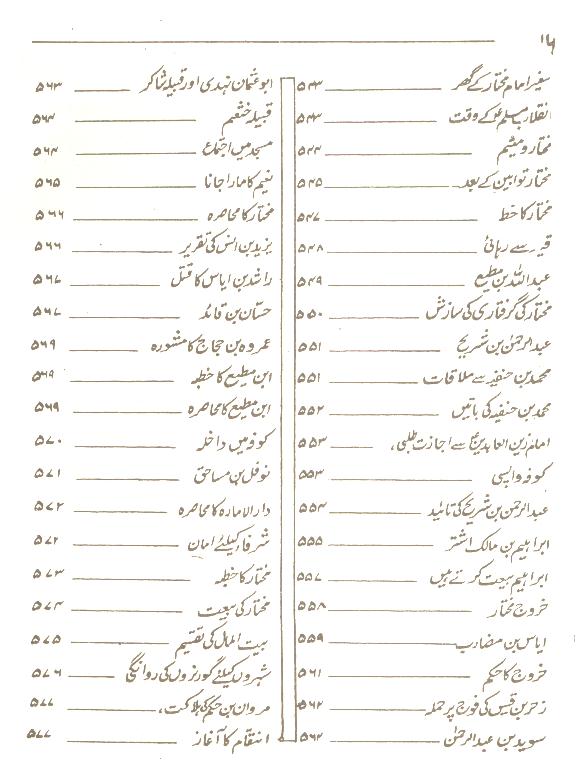 ۱۶
سفیر امام مختار کے گھر ۵۴۳
انقلاب مسلمؑ کے وقت ۵۴۳
مختار و میثم ۵۴۴
مختار توابین کے بعد ۵۴۵
مختار کا خط ۵۴۷
قید سے رہائی ۵۴۸
عبداللہ بن مطیع ۵۴۹
مختار کی گرفتاری کی سازش ۵۵۰
عبدالرحمٰن بن شریح ۵۵۱
محمد بن حنفیہ سے ملاقات ۵۵۱
محمد بن حنفیہ کی باتیں ۵۵۲
امام زین العابدینؑ سے اجازت طلبی، ۵۵۳
کوفہ واپسی ۵۵۳
عبدالرحمن بن شریح کی تائید ۵۵۴
ابراہیم بن مالک اشتر ۵۵۵
ابراہیم بیعت کرتے ہیں ۵۵۷
خروج مختار ۵۵۸
ایاس بن مضارب ۵۵۹
خروج کا حکم ۵۶۱
زحر بن قیس کی فوج پر حملہ ۵۶۲
سوید بن عبدالرحمٰن ۵۶۲
ابو عثمان نہدی اور قبیلہ شاکر ۵۶۳
قبیلہ خثعم ۵۶۴
مسجد میں اجتماع ۵۶۴
نعیم کا مارا جانا ۵۶۵
مختار کا محاصرہ ۵۶۶
یزید بن انس کی تقریر ۵۶۶
راشد بن ایاس کا قتل ۵۶۷
حسّان بن قائد ۵۶۷
عمرو بن حجاج کا مشورہ ۵۶۹
ابن مطیع کا خطبہ ۵۶۹
ابن مطیع کا محاصرہ ۵۶۹
کوفہ میں داخلہ ۵۷۰
نوفل بن مساحق ۵۷۱
دارالامارہ کا محاصرہ ۵۷۲
شرفاء کیلئے امان ۵۷۲
مختار کا خطبہ ۵۷۳
مختار کی بیعت ۵۷۴
بیت المال کی تقسیم ۵۷۵
شہروں کیلئے گورنروں کی روانگی ۵۷۶
مروان بن حکم کی ہلاکت، ۵۷۷
انتقام کا آغاز ۵۷۷